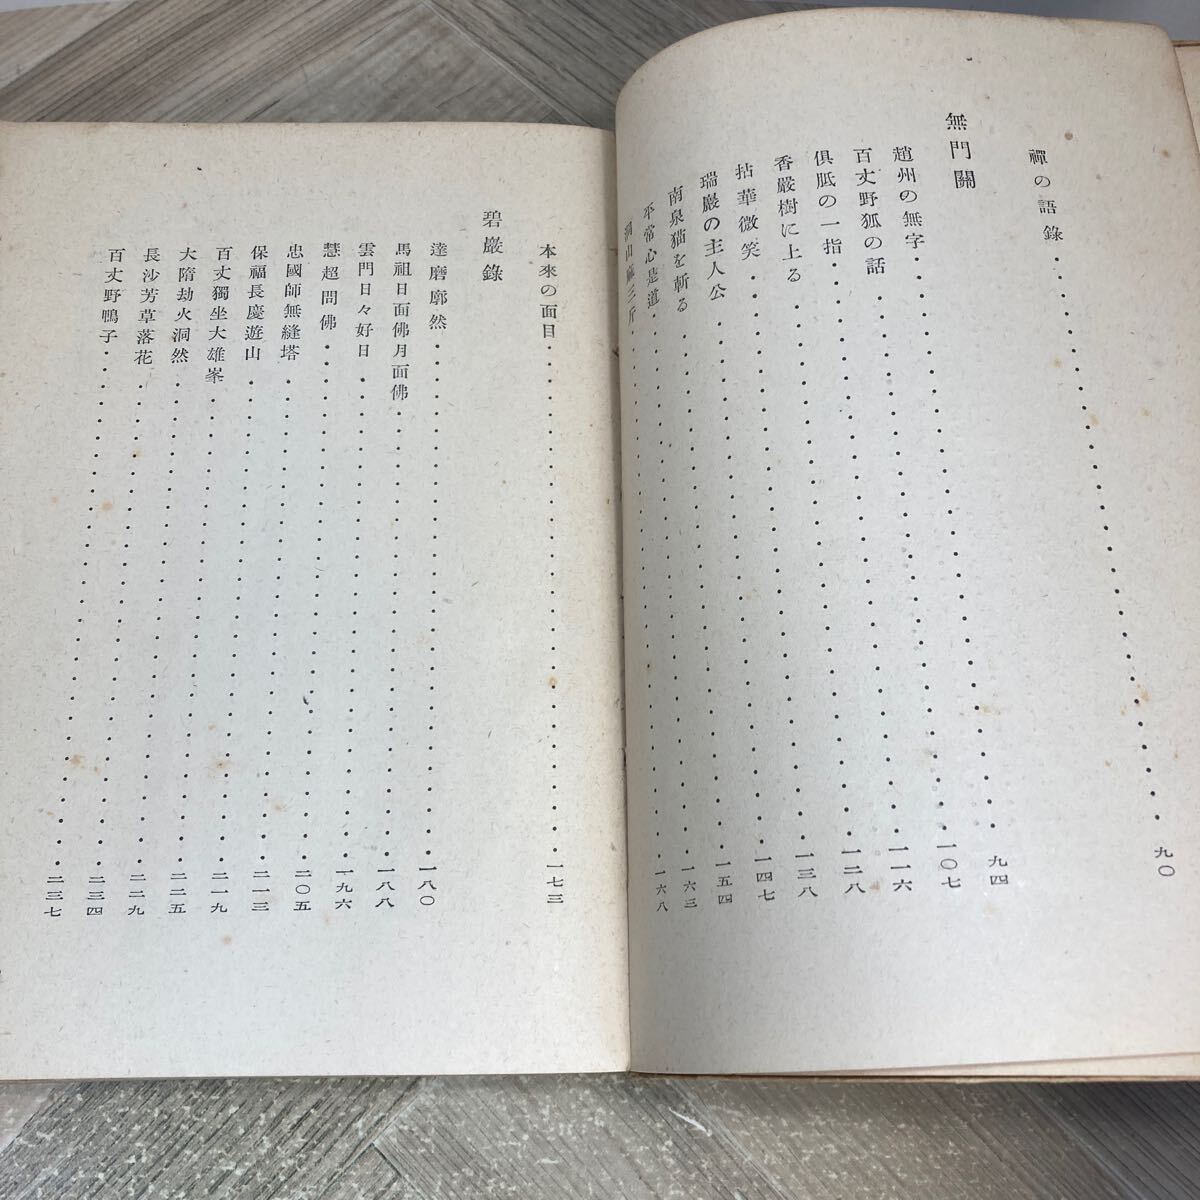 禪の語錄・・・・・・・・・・・・・・・・・・・・・・九〇
無門關
趙州の無字・・・・・・・・・・・・・・・・・・・・・・九四
百丈野狐の話・・・・・・・・・・・・・・・・・・・・・・一〇七
俱胝の一指・・・・・・・・・・・・・・・・・・・・・・一一六
香嚴樹に上る・・・・・・・・・・・・・・・・・・・・・・一二八
拈華微笑・・・・・・・・・・・・・・・・・・・・・・一三八
瑞巖の主人公・・・・・・・・・・・・・・・・・・・・・・一四七
南泉猫を斬る・・・・・・・・・・・・・・・・・・・・・・一五四
平常心是道・・・・・・・・・・・・・・・・・・・・・・一六三
洞山麻三斤・・・・・・・・・・・・・・・・・・・・・・一六八
本來の面目・・・・・・・・・・・・・・・・・・・・・・一七三
碧巖錄
達磨廓然・・・・・・・・・・・・・・・・・・・・・・一八〇
馬祖日面佛月面佛・・・・・・・・・・・・・・・・・・・・・・一八八
雲門日々好日・・・・・・・・・・・・・・・・・・・・・・一九六
慧超問佛・・・・・・・・・・・・・・・・・・・・・・二〇五
忠國師無縫塔・・・・・・・・・・・・・・・・・・・・・・二一三
保福長慶遊山・・・・・・・・・・・・・・・・・・・・・・二一九
百丈獨坐大雄峯・・・・・・・・・・・・・・・・・・・・・・二二五
大隋劫火洞然・・・・・・・・・・・・・・・・・・・・・・二二九
長沙芳草落花・・・・・・・・・・・・・・・・・・・・・・二三四
百丈野鴨子・・・・・・・・・・・・・・・・・・・・・・二三七